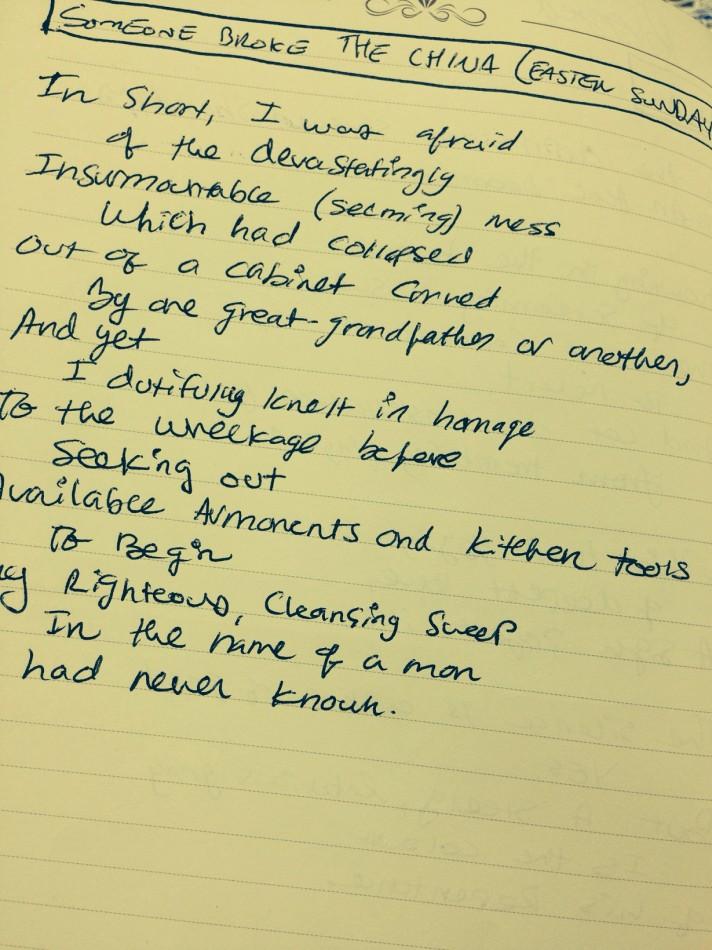 SOMEONE BROKE THE CHINA (EASTER SUNDAY
In Short, I was afraid
of the devastatingly
Insurmountable (seeming) mess
Which had collapsed
Out of a cabinet Carved
By one great-grandfather or another,
And yet
I dutifully knelt in homage
To the wreckage before
Seeking out
Available Armaments and kitchen tools
To Begin
My Righteous, Cleansing Sweep
In the name of a man
had never known.